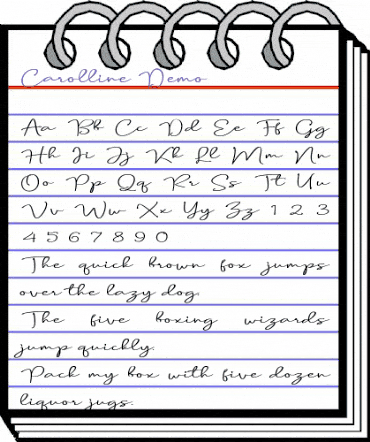 Carolline Demo
Aa Bb Cc Dd Ee Ff Gg
Hh Ii Jj Kk Ll Mm Nn
Oo Pp Qq Rr Ss Tt Uu
Vv Ww Xx Yy Zz 1 2 3
4 5 6 7 8 9 0
The quick brown fox jumps
over the lazy dog.
The five boxing wizards
jump quickly.
Pack my box with five dozen
liquor jugs.